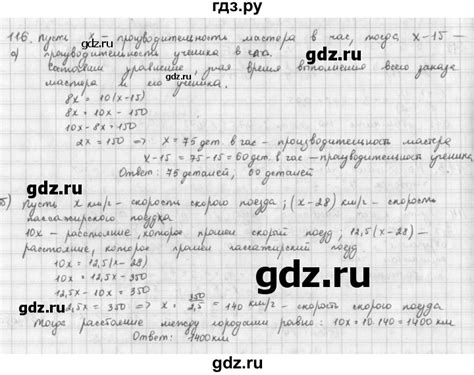 гдз.ру
116. Пусть x – производительность мастора в час, тогда x-15 –
а) производительность ученика в час.
Составим уравнение, зная время выполнения всего заказа
мастора и его ученика.
8x = 10(x-15)
8x = 10x - 150
10x - 8x = 150
2x = 150 => x = 75 дет. в час – производительность мастера
x-15 = 75-15 = 60 дет. в час – производительность ученика
Ответ: 75 деталей, 60 деталей
б) Пусть x км/г – скорость скорого поезда; (x-28) км/г – скорость
пассажирского поезда
10x – расстояние, которое прошел скорый поезд; 12,5(x-28) –
расстояние, которое прошел пассажирский поезд
10x = 12,5(x-28)
10x = 12,5x - 350
12,5x - 10x = 350
2,5x = 350 => x = 350/2,5 = 140 км/г – скорость скорого поезда
Тогда расстояние между городами равно: 10x = 10·140 = 1400 км
Ответ: 1400 км
gdz.ru
gdz.ru
gdz.ru
gdz.ru
gdz.ru
gdz.ru
gdz.ru
gdz.ru